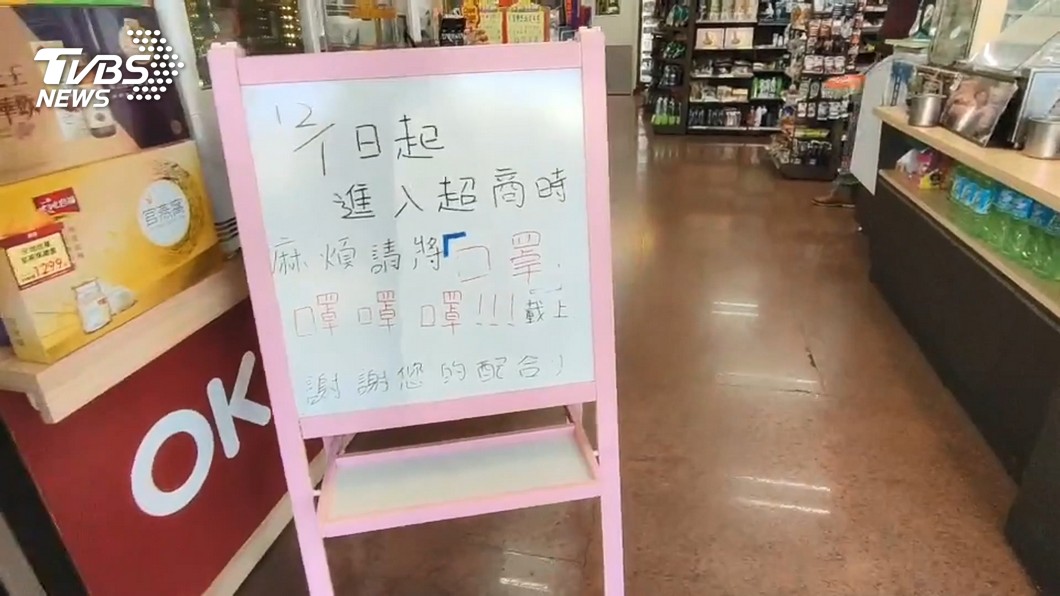 TVBS
NEWS
12/1日起
進入超商時
麻煩請將「口罩、
口罩口罩口罩!!!戴上
謝謝您的配合!
官燕窩
1299
OK